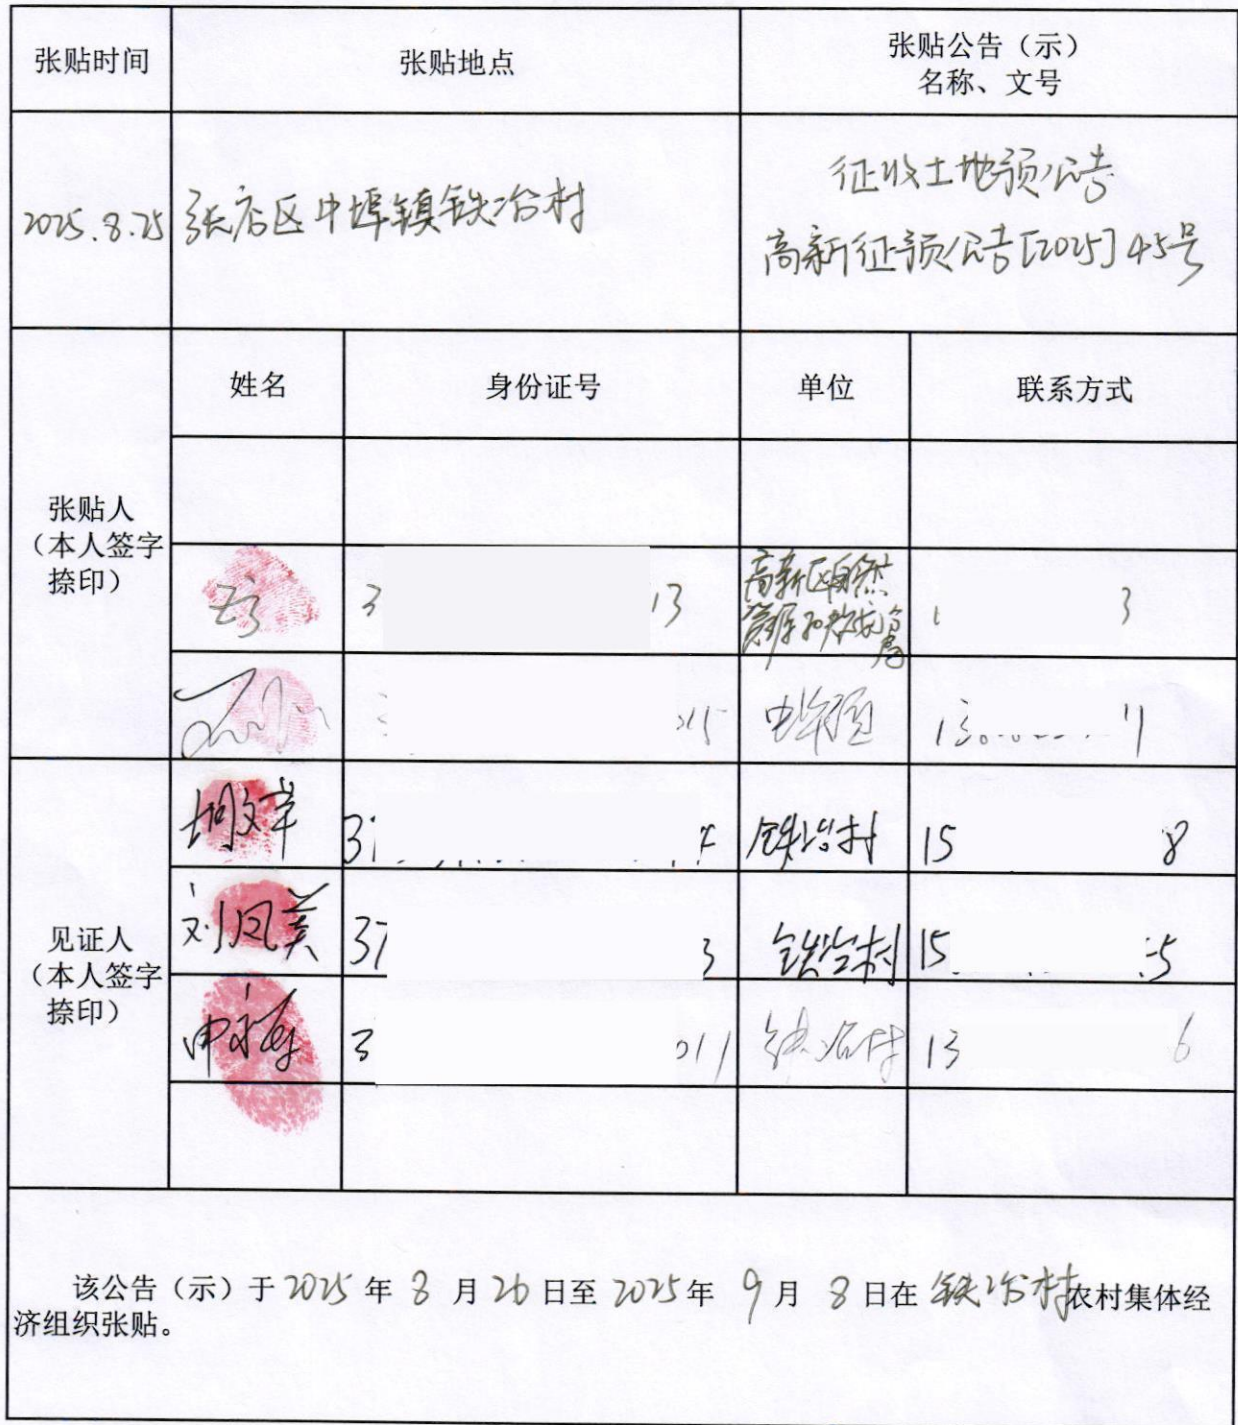 张贴时间
张贴地点
张贴公告（示）
名称、文号
2025.8.25
张店区中埠镇铁冶村
征收土地预公告
高新征预公告[2025]45号
姓名
身份证号
单位
联系方式
张贴人
（本人签字
捺印）
3 13
高新区自然
资源和规划
1 3
015
中埠镇
13 11
见证人
（本人签字
捺印）
31 4
铁冶村
15 8
刘凤美
37 3
铁冶村
15 5
3 011
铁冶村
13 6
该公告（示）于2025年8月26日至2025年9月8日在铁冶村农村集体经
济组织张贴。